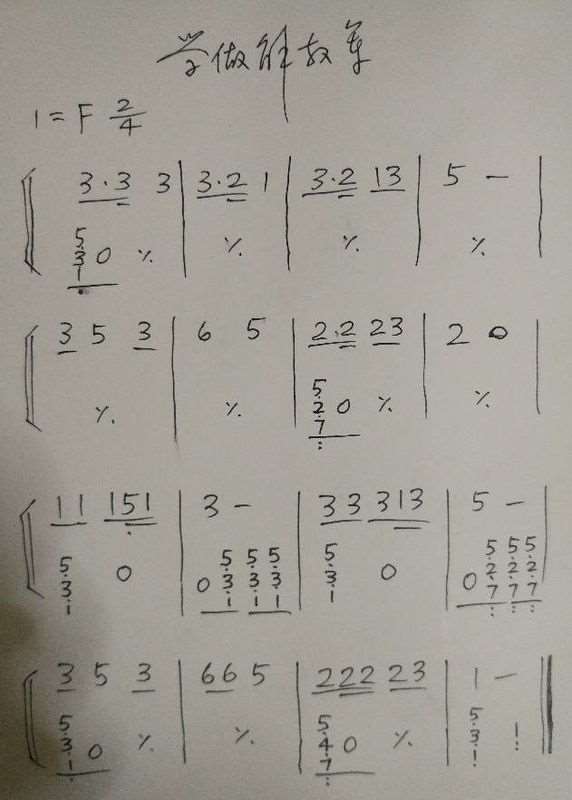 学做解放军
1=F 2/4
3·3 3 | 3·2 1 | 3·2 13 | 5 — |
5 3 1 0 ٪ | ٪ | ٪ | ٪ |
3 5 3 | 6 5 | 2·2 23 | 2 0 |
٪ | ٪ | 5 2 7 0 ٪ | ٪ |
11 151 | 3 — | 33 313 | 5 — |
5 3 1 0 | 0 531 531 531 | 5 3 1 0 | 0 527 527 527 |
3 5 3 | 66 5 | 222 23 | 1 — ‖
5 3 1 0 ٪ | ٪ | 5 4 7 0 ٪ | 5 3 1 1 ‖